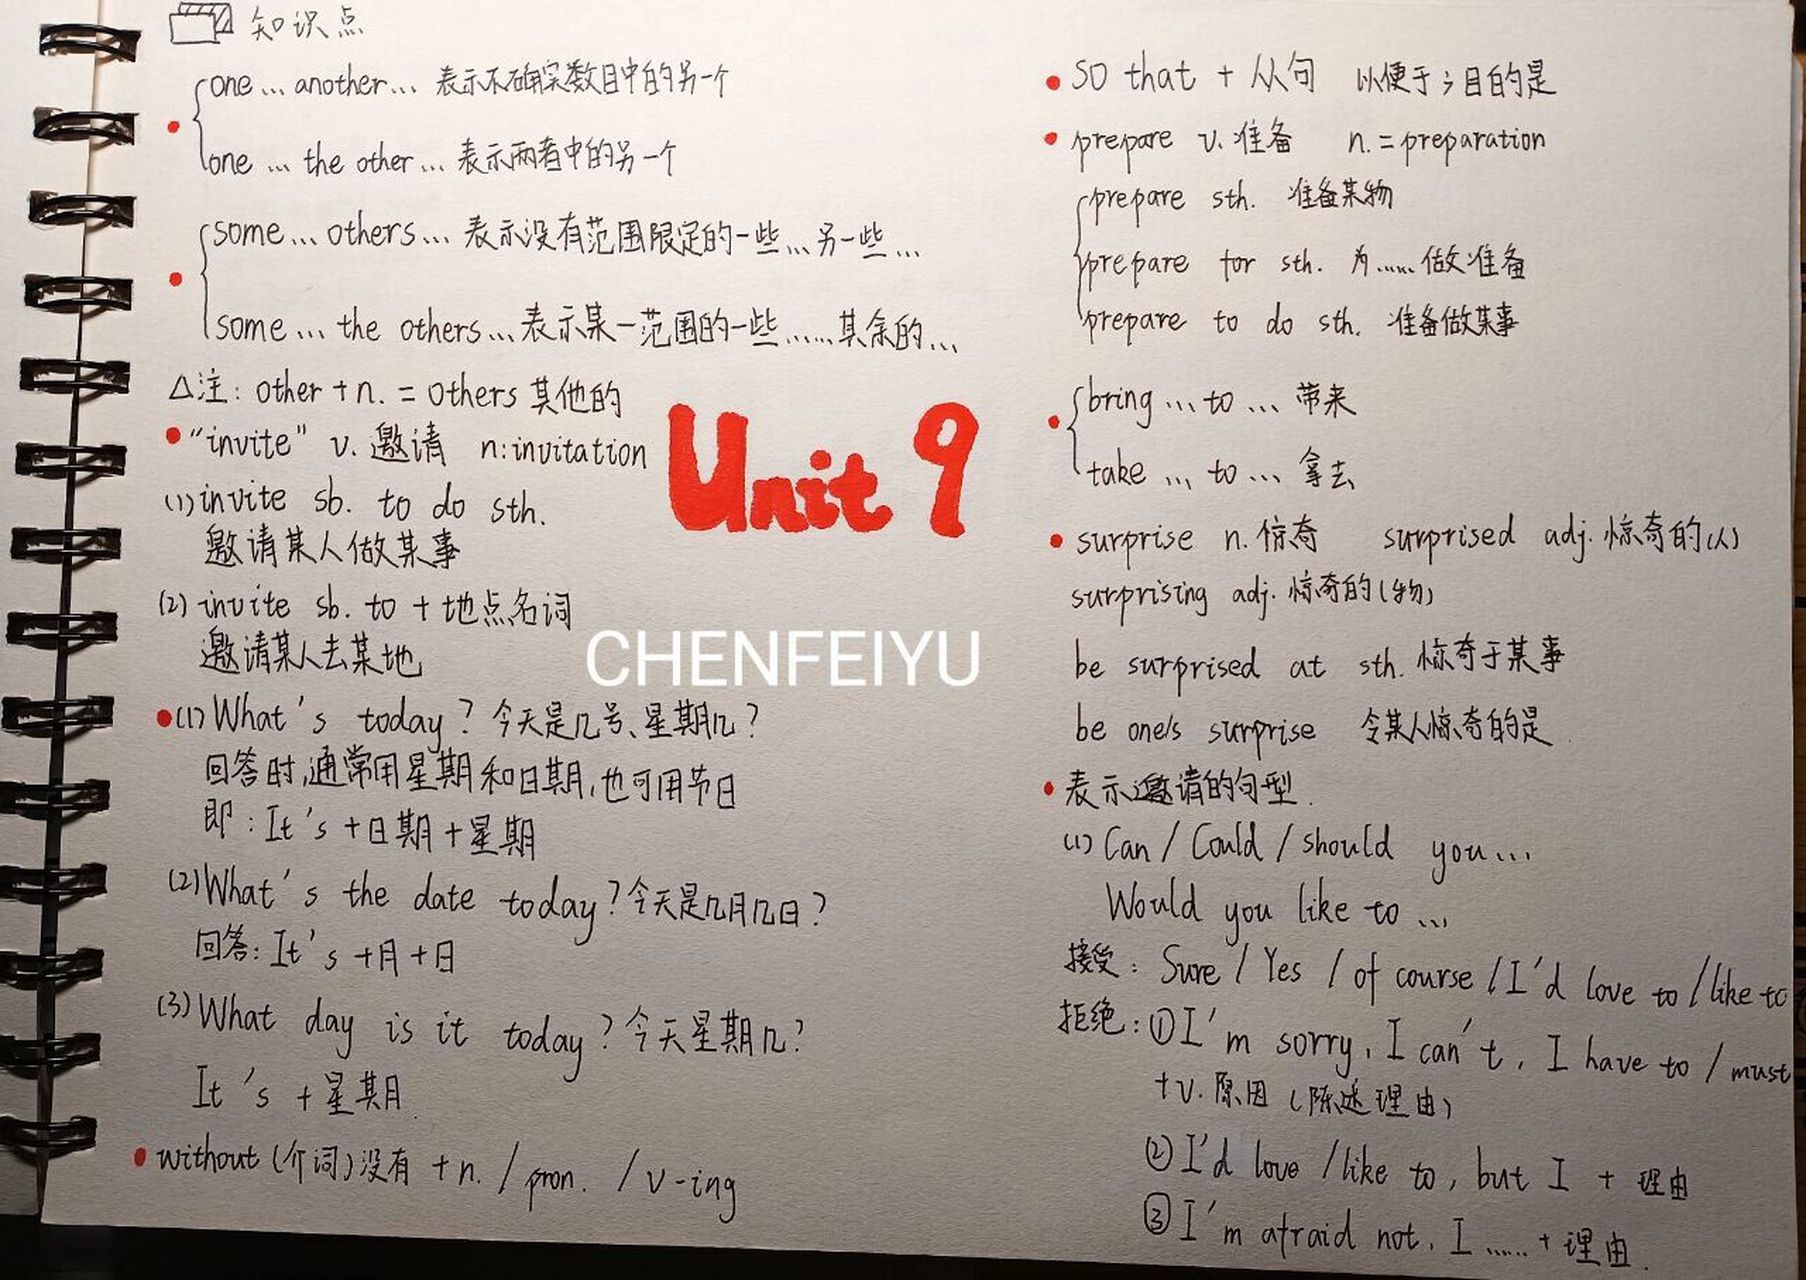 知识点
one … another … 表示不确定数目中的另一个
one … the other … 表示两者中的另一个
some … others … 表示没有范围限定的一些…另一些…
some … the others … 表示某一范围的一些……其余的…
△注: other + n. = others 其他的
"invite" v. 邀请 n: invitation
(1) invite sb. to do sth.
邀请某人做某事
(2) invite sb. to + 地点名词
邀请某人去某地
(1) What's today? 今天是几号、星期几?
回答时,通常用星期和日期,也可用节日
即: It's + 日期 + 星期
(2) What's the date today? 今天是几月几日?
回答: It's + 月 + 日
(3) What day is it today? 今天星期几?
It's + 星期.
without (介词) 没有 + n. / pron. / v-ing
Unit 9
CHENFEIYU
so that + 从句 以便于;目的是
prepare v. 准备 n. = preparation
prepare sth. 准备某物
prepare for sth. 为……做准备
prepare to do sth. 准备做某事
bring … to … 带来
take … to … 拿去
surprise n. 惊奇 surprised adj. 惊奇的(人)
surprising adj. 惊奇的(物)
be surprised at sth. 惊奇于某事
be one's surprise 令某人惊奇的是.
表示邀请的句型.
(1) Can / Could / should you …
Would you like to …
接受: Sure / Yes / of course / I'd love to / like to
拒绝: ① I'm sorry, I can't, I have to / must
+ v. 原因 (陈述理由)
② I'd love / like to, but I + 理由
③ I'm afraid not, I …… + 理由.